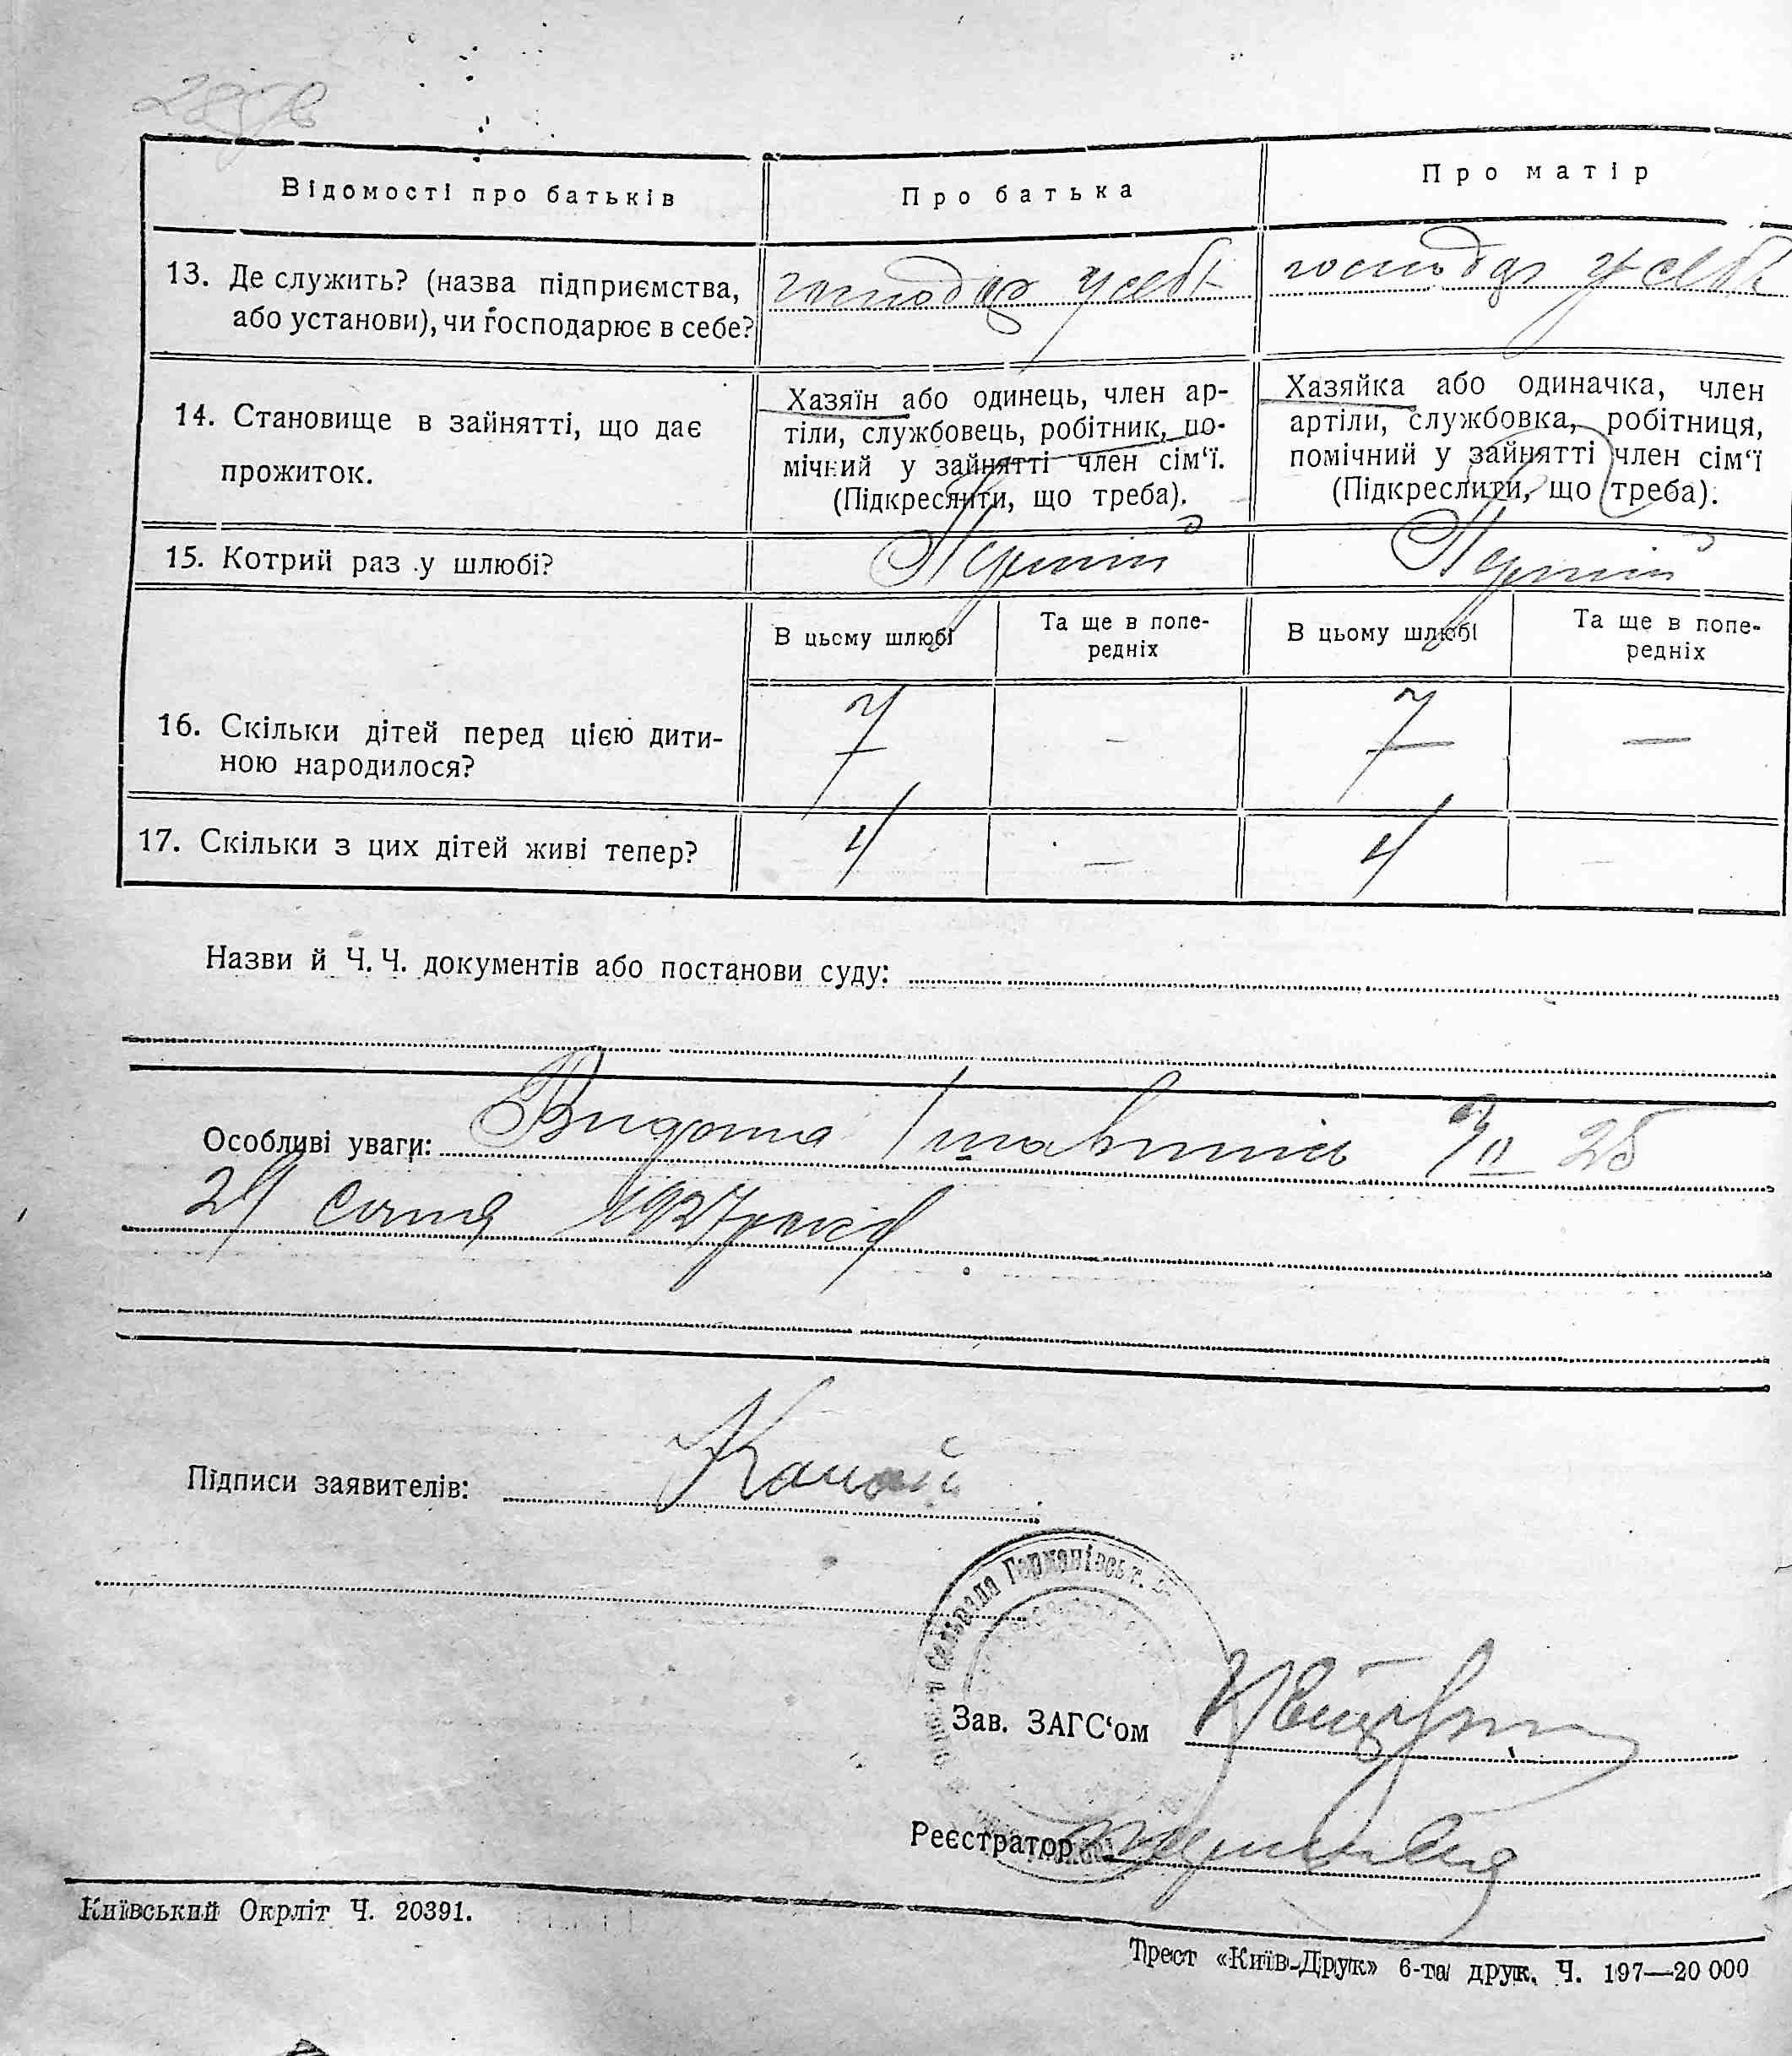 Відомості про батьків
Про батька
Про матір
13. Де служить? (назва підприємства,
або установи), чи господарює в себе?
господар у себе
господар у себе
14. Становище в зайнятті, що дає
прожиток.
Хазяїн або одинець, член ар-
тіли, службовець, робітник, по-
мічний у зайнятті член сім‘ї.
(Підкреслити, що треба).
Хазяйка або одиначка, член
артіли, службовка, робітниця,
помічний у зайнятті член сім‘ї
(Підкреслити, що треба).
15. Котрий раз у шлюбі?
Перший
Перший
В цьому шлюбі
Та ще в попе-
редніх
В цьому шлюбі
Та ще в попе-
редніх
16. Скільки дітей перед цією дити-
ною народилося?
7 — 7 —
17. Скільки з цих дітей живі тепер?
4 — 4 —
Назви й Ч. Ч. документів або постанови суду:
Особливі уваги: Видата
1927 року
Підписи заявителів:
Сельрада Германівськ.
Зав. ЗАГС‘ом
Реєстратор
Київський Окрліт Ч. 20391.
Трест «Київ-Друк» 6-та друк. Ч. 197—20 000